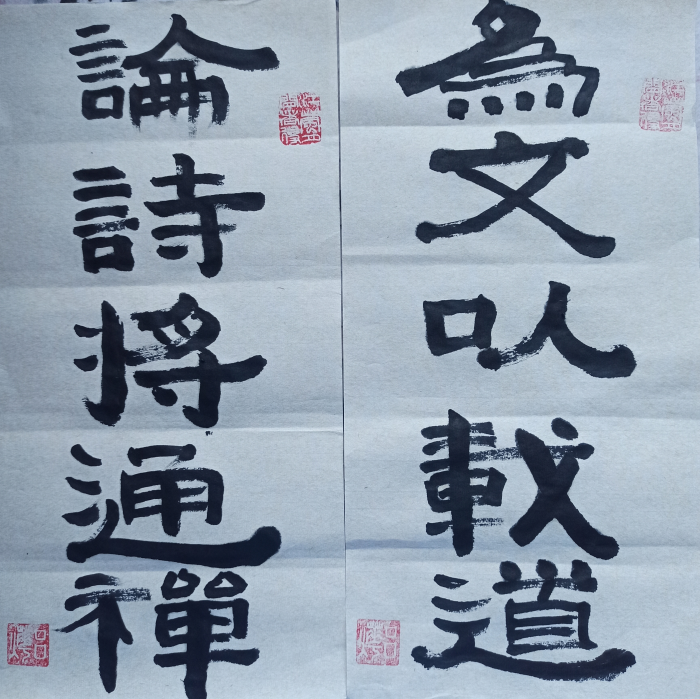 為文以載道
論詩將通禪